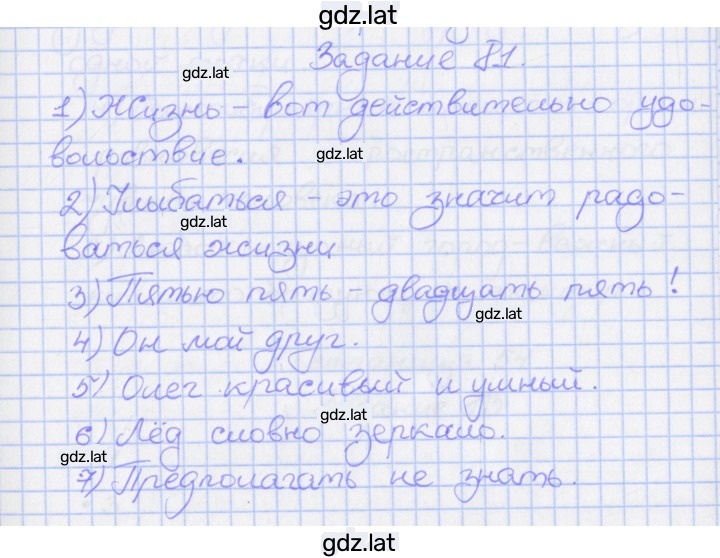 gdz.lat
Задание 81.
gdz.lat
1) Жизнь – вот действительно удо-
вольствие.
gdz.lat
2) Улыбаться – это значит радо-
gdz.lat
ваться жизни
3) Пятью пять – двадцать пять!
gdz.lat
4) Он мой друг.
5) Олег красивый и умный.
gdz.lat
6) Лёд словно зеркало.
gdz.lat
7) Предполагать не знать.
gdz.lat